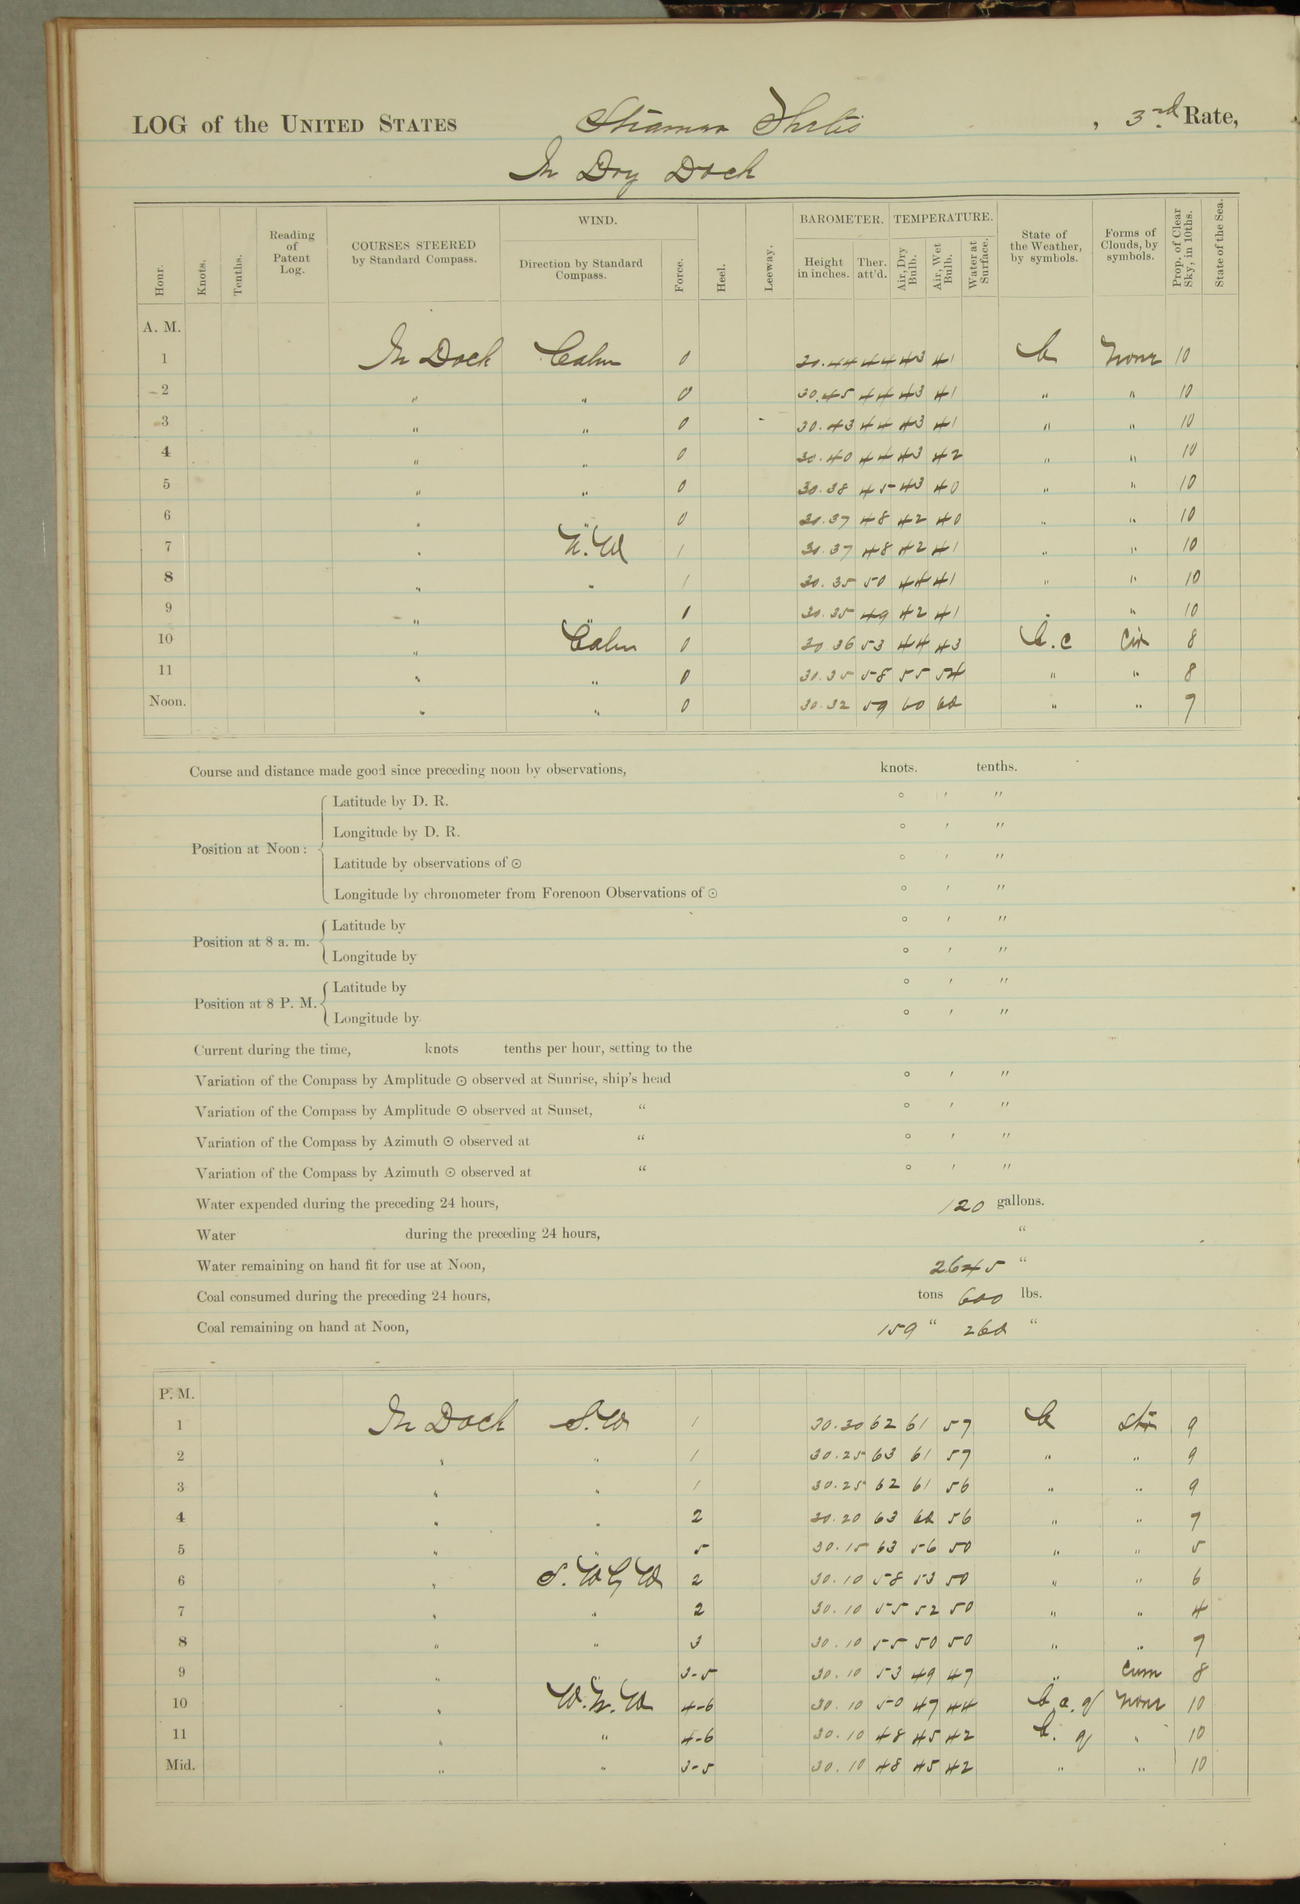 LOG of the UNITED STATES Steamer Thetis , 3rd Rate,
In Dry Dock
Hour. Knots. Tenths. Reading of Patent Log. COURSES STEERED by Standard Compass. WIND. Direction by Standard Compass. Force. Heel. Leeway. BAROMETER. Height in inches. Ther. att'd. TEMPERATURE. Air, Dry Bulb. Air, Wet Bulb. Water at Surface. State of the Weather, by symbols. Forms of Clouds, by symbols. Prop. of Clear Sky, in 10ths. State of the Sea.
A. M.
1 In Dock Calm 0 30.44 44 43 41 b None 10
2 " " 0 30.45 44 43 41 " " 10
3 " " 0 30.43 44 43 41 " " 10
4 " " 0 30.40 44 43 42 " " 10
5 " " 0 30.38 45 43 40 " " 10
6 " " 0 30.37 48 42 40 " " 10
7 " N.W 1 30.37 48 42 41 " " 10
8 " " 1 30.35 50 44 41 " " 10
9 " " 1 30.35 49 42 41 " " 10
10 " Calm 0 30 36 53 44 43 b.c Cir 8
11 " " 0 30.35 58 55 54 " " 8
Noon. " " 0 30.32 59 60 60 " " 7
Course and distance made good since preceding noon by observations, knots. tenths.
Position at Noon: Latitude by D. R. ° ′ ″
Longitude by D. R. ° ′ ″
Latitude by observations of ☉ ° ′ ″
Longitude by chronometer from Forenoon Observations of ☉ ° ′ ″
Position at 8 a. m. Latitude by ° ′ ″
Longitude by ° ′ ″
Position at 8 P. M. Latitude by ° ′ ″
Longitude by ° ′ ″
Current during the time, knots tenths per hour, setting to the
Variation of the Compass by Amplitude ☉ observed at Sunrise, ship's head ° ′ ″
Variation of the Compass by Amplitude ☉ observed at Sunset, " ° ′ ″
Variation of the Compass by Azimuth ☉ observed at " ° ′ ″
Variation of the Compass by Azimuth ☉ observed at " ° ′ ″
Water expended during the preceding 24 hours, 120 gallons.
Water during the preceding 24 hours, "
Water remaining on hand fit for use at Noon, 2645 "
Coal consumed during the preceding 24 hours, tons 600 lbs.
Coal remaining on hand at Noon, 159 " 260 "
P. M.
1 In Dock S.W 1 30.30 62 61 57 b Str 9
2 " " 1 30.25 63 61 57 " " 9
3 " " 1 30.25 62 61 56 " " 9
4 " " 2 30.20 63 60 56 " " 7
5 " " 5 30.15 63 56 50 " " 5
6 " S.W by W 2 30.10 58 53 50 " " 6
7 " " 2 30.10 55 52 50 " " 4
8 " " 3 30.10 55 50 50 " " 7
9 " 3-5 30.10 53 49 47 " Cum 8
10 " W.N.W 4-6 30.10 50 47 44 None 10
11 " " 4-6 30.10 48 45 42 b. q " 10
Mid. " " 3-5 30.10 48 45 42 " " 10